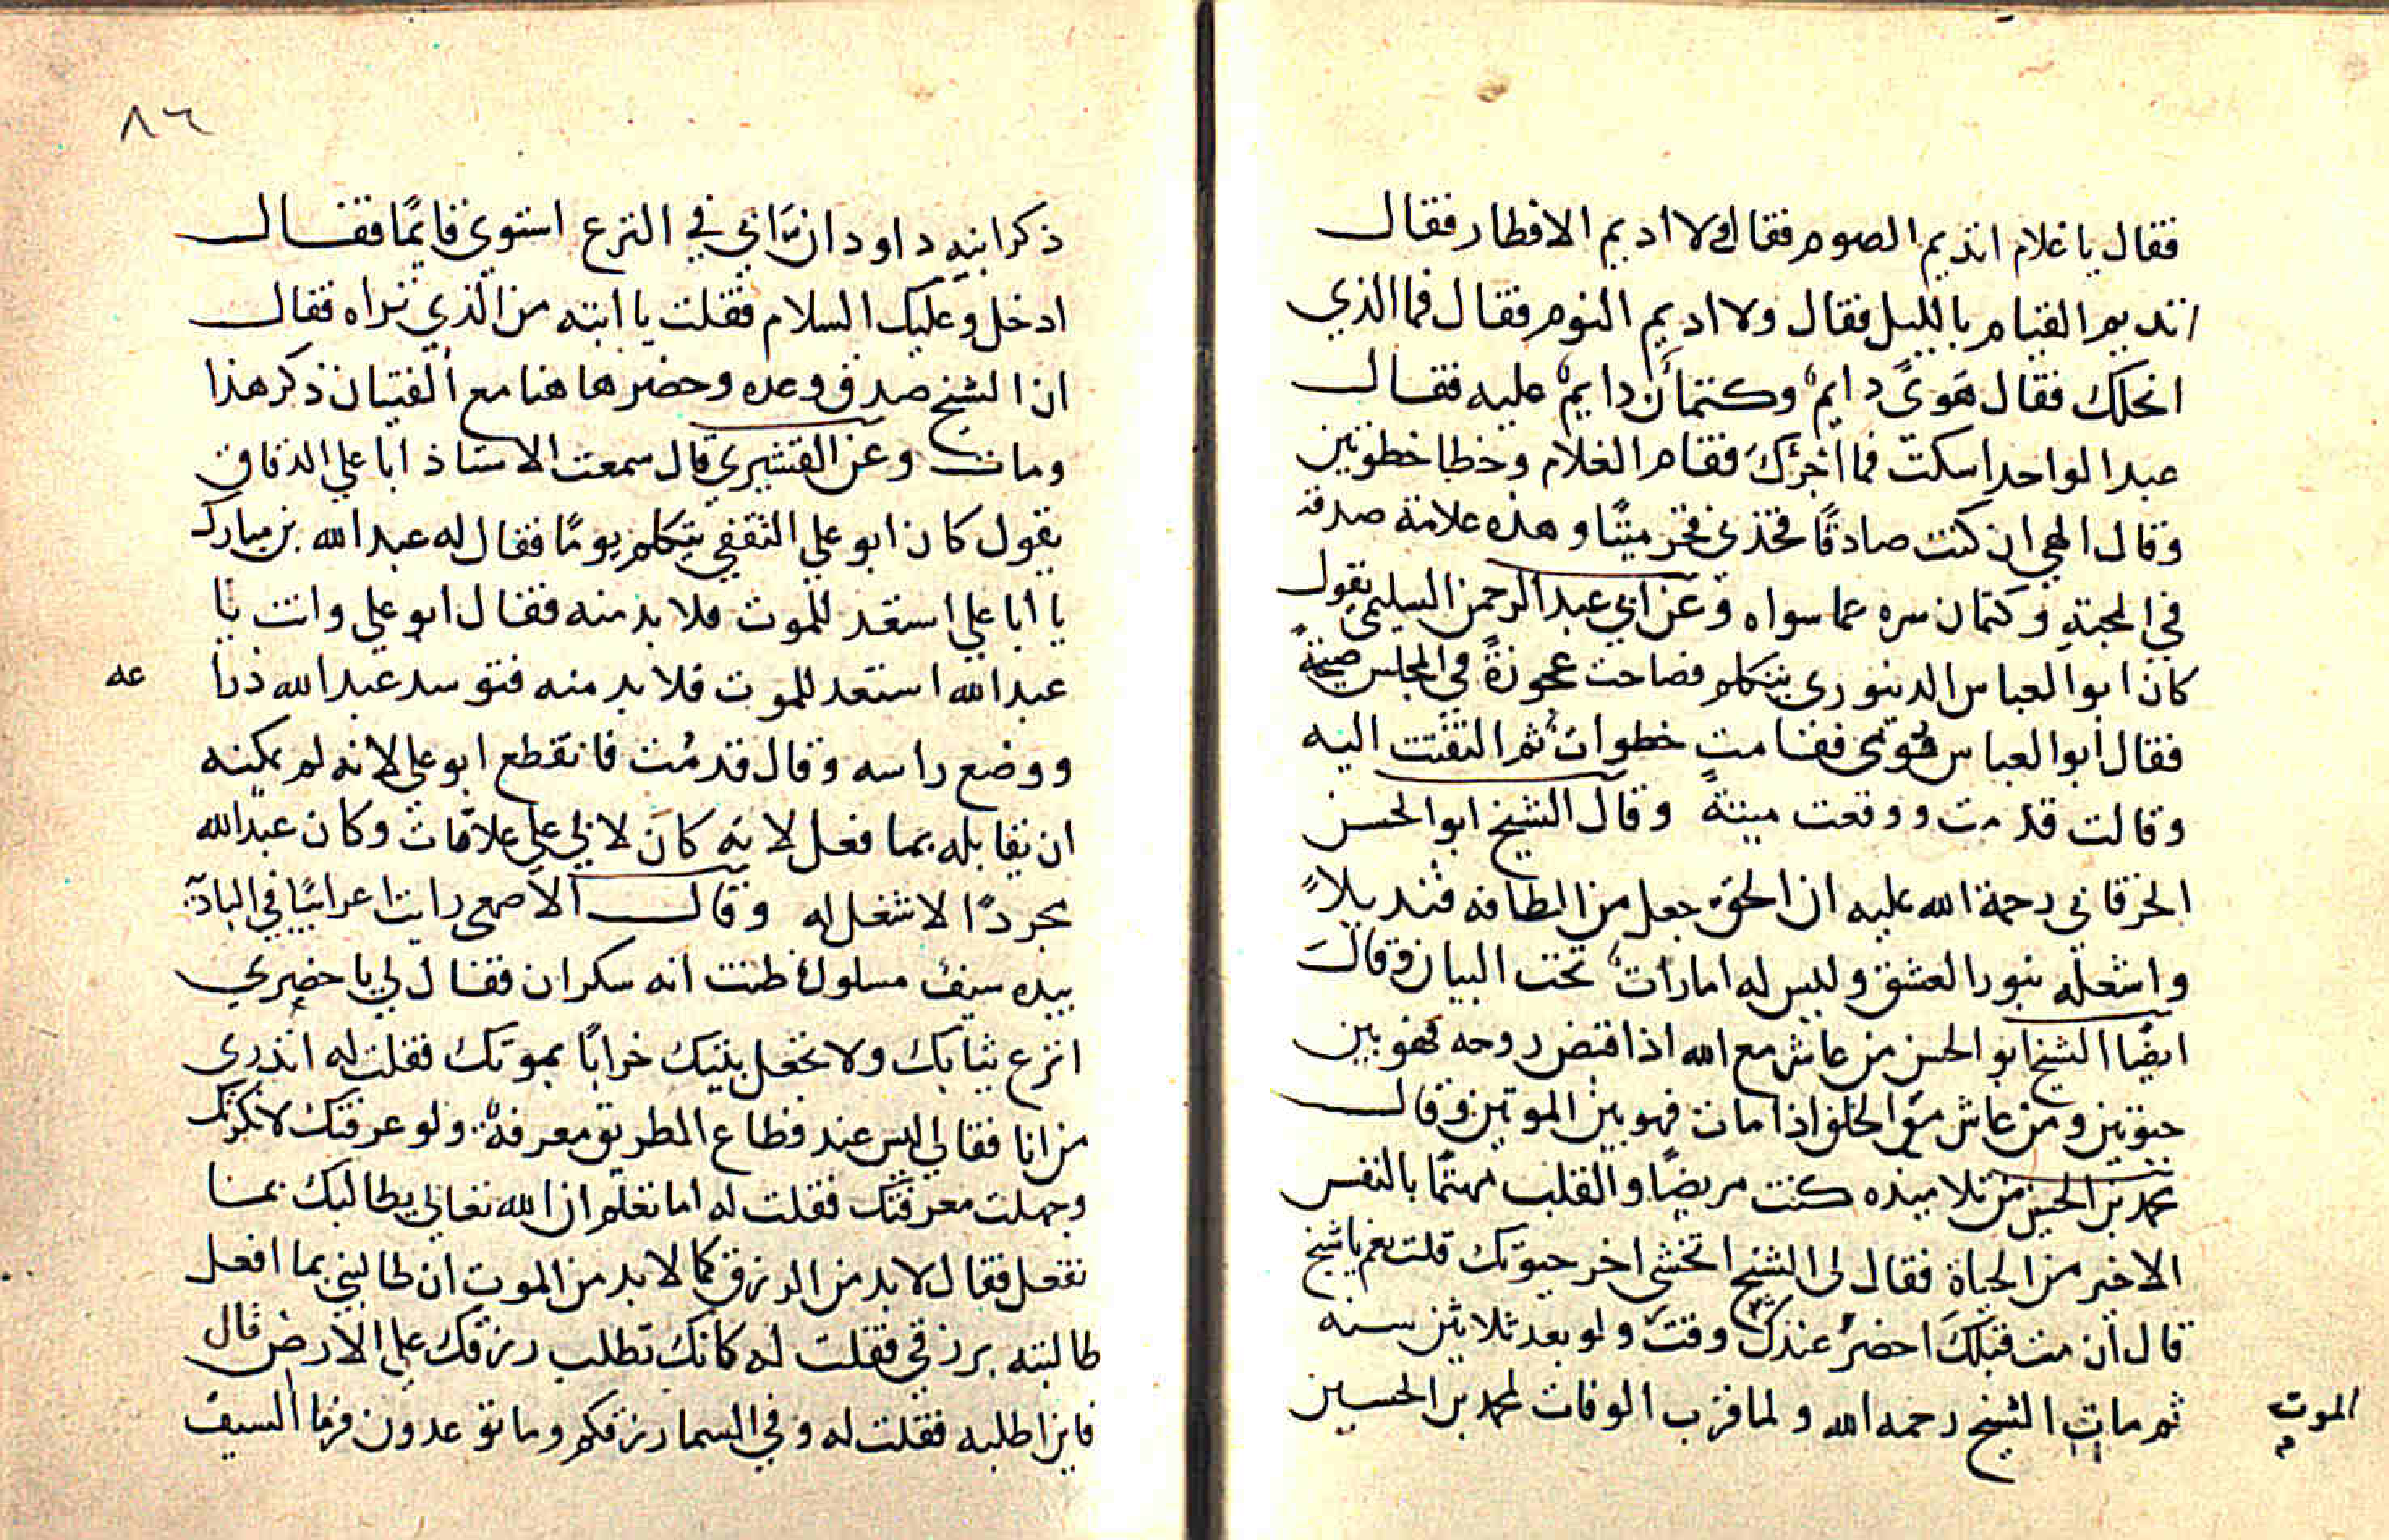 فقال يا غلام اتديم الصوم فقال ولا اديم الافطار فقال
اتديم القيام بالليل فقال ولا اديم النوم فقال فما الذي
انحلك فقال هَوىً دايمٌ وكتمانٌ دايمٌ عليه فقال
عبد الواحد اسكت فما اجرَكَ فقام الغلام وخطا خطوتين
وقال الهي ان كنت صادقًا فخذني فخر ميتًا وهذه علامة صدقه
في المحبة وكتمان سره عما سواه وعن ابي عبد الرحمن السلمي يقول
كان ابو العباس الدينوري يتكلم فصاحت عجوزةٌ في المجلس صيحةً
فقال ابو العباس مُوتي فقامت خطوات ثم التفتت اليه
وقالت قد مت ووقعت ميتةً وقال الشيخ ابو الحسن
الخرقاني رحمة الله عليه ان الحق جعل من الطافه قنديلاً
واشعله بنور العشق وليس له امارات تحت البيان وقال
ايضًا الشيخ ابو الحسن من عاش مع الله اذا قبض روحه فهو بين
حيوتين ومن عاش مع الخلق اذا مات فهو بين الموتين وقال
محمد بن الحسين من تلاميذه كنت مريضًا والقلب مهتمًا بالنفس
الاخير من الحياة فقال لي الشيخ اتخشى اخر حيوتك قلت نعم يا شيخ
قال ان مت قبلكَ احضرُ عندك وقت ولو بعد ثلاثين سنه
الموت
ثم مات الشيخ رحمه الله ولما قرب الوفات لمحمد بن الحسين
٨٦
ذكر ابنه داود انَّ ابي في النزع استوى قايمًا فقال
ادخل وعليك السلام فقلت يا ابته من الذي تراه فقال
ان الشيخ صدق وعده وحضر هاهنا مع الفتيان ذكر هذا
ومات وعن القشيري قال سمعت الاستاذ ابا علي الدقاق
يقول كان ابو علي الثقفي يتكلم يومًا فقال له عبد الله بن مبارك
يا ابا علي استعد للموت فلا بد منه فقال ابو علي وانت يا
عبد الله استعد للموت فلا بد منه فتوسد عبد الله ذرا
عه
ووضع راسه وقال قد مُت فانقطع ابو علي لانه لم يمكنه
ان يقابله بما فعل لانه كان لابي علي علاقات وكان عبد الله
مجردًا لا شغل له وقال الاصمعي رايت اعرابيًا في البادية
بيده سيف مسلول ظننت انه سكران فقال لي يا حضري
انزع ثيابك ولا تجعل بيتك خرابًا بموتك فقلت له اتدري
من انا فقال لي ليس عند قطاع الطريق معرفة ولو عرفتك لانكرتك
وجهلت معرفتك فقلت له اما تعلم ان الله تعالى يطالبك بما
تفعل فقال لا بد من الرزق كما لا بد من الموت ان طالبني بما افعل
طالبته برزقي فقلت له كانك تطلب رزقك على الارض قال
فاين اطلبه فقلت له وفي السما رزقكم وما توعدون فرما السيف